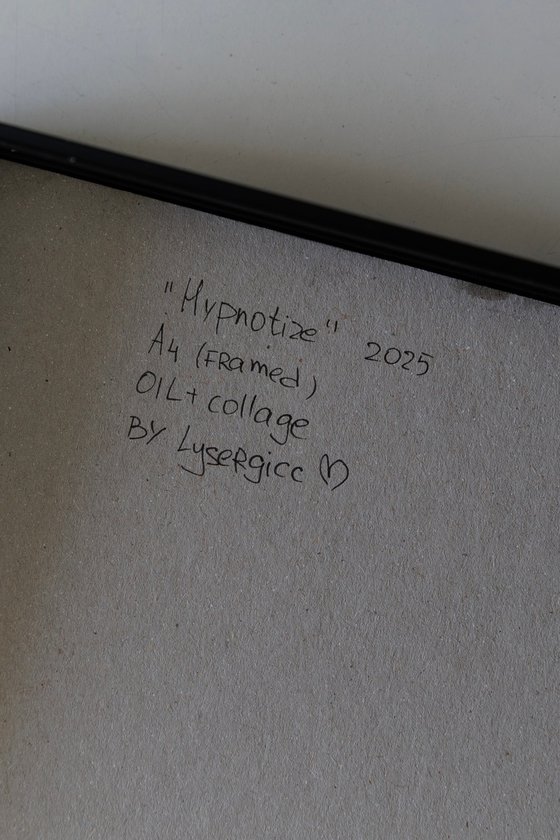 "Hypnotize" 2025
A4 (FRamed)
OIL+ collage
BY LyseRgicc ♡